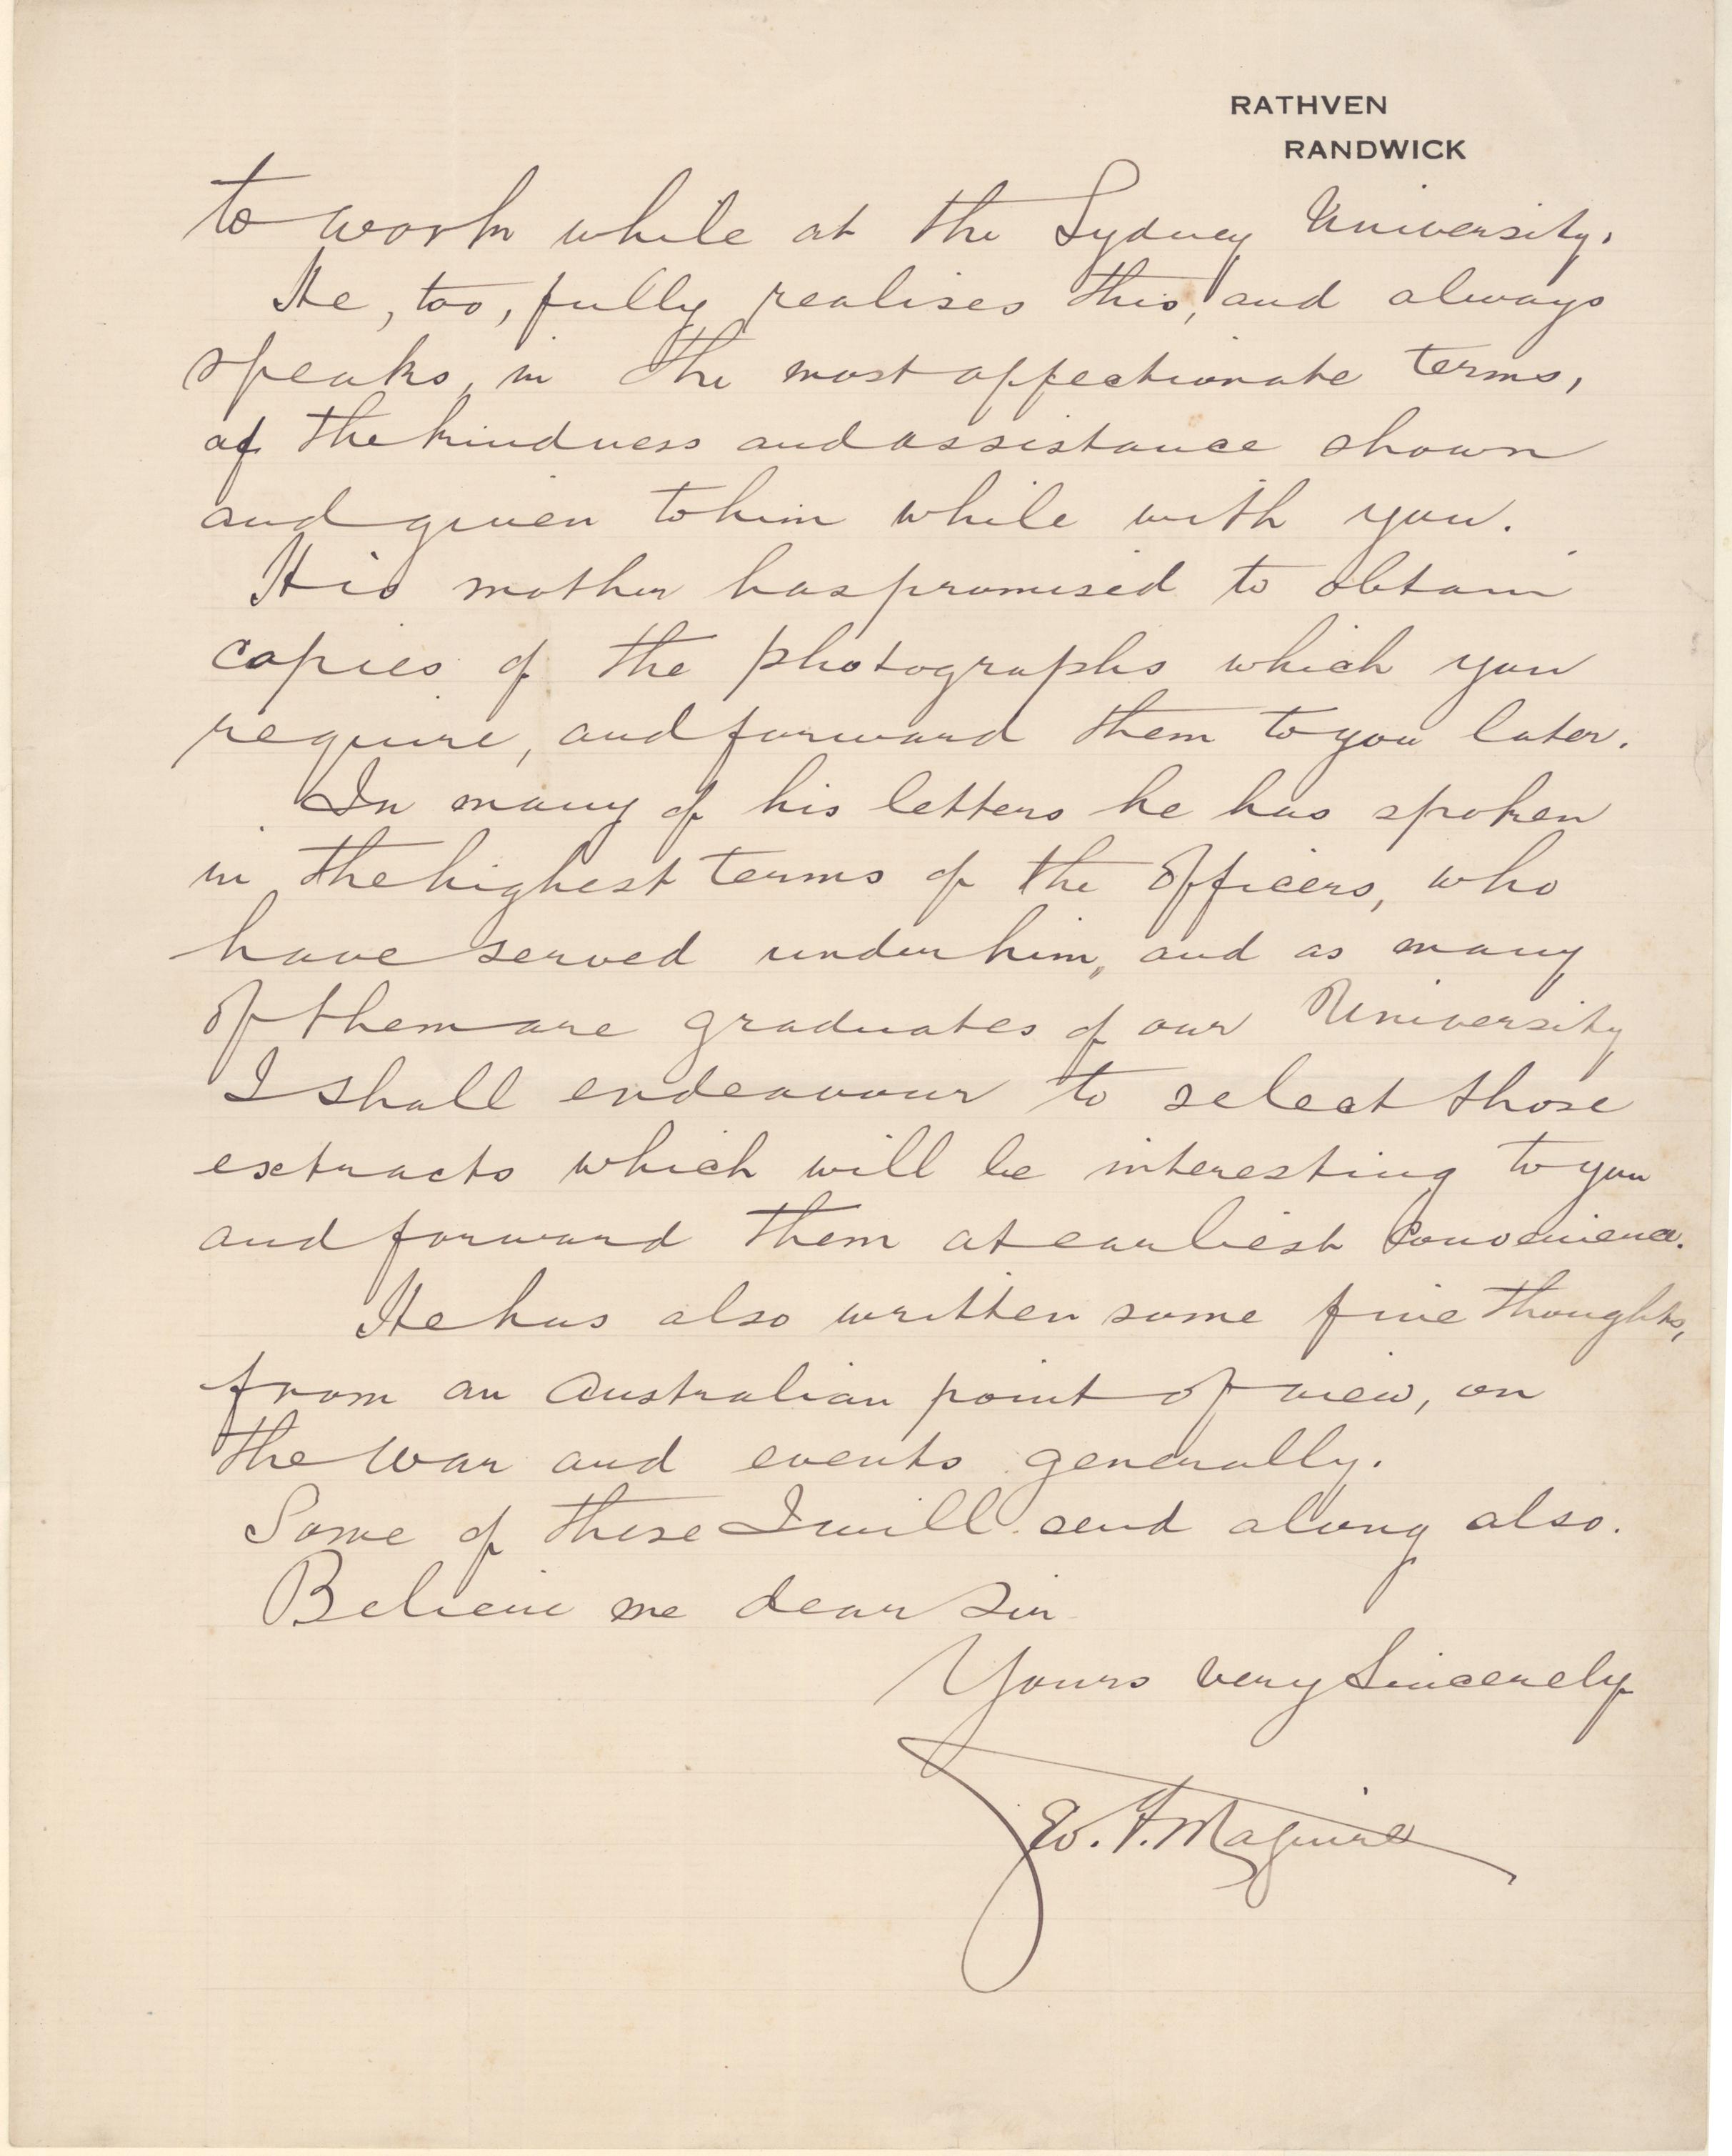 RATHVEN
RANDWICK
to work while at the Sydney University.
He, too, fully realises this, and always
speaks, in the most affectionate terms,
of the kindness and assistance shown
and given to him while with you.
His mother has promised to obtain
copies of the photographs which you
require, and forward them to you later.
In many of his letters he has spoken
in the highest terms of the Officers, who
have served under him, and as many
of them are graduates of our University
I shall endeavour to select those
extracts which will be interesting to you
and forward them at earliest convenience.
He has also written some fine thoughts,
from an Australian point of view, on
the War and events generally.
Some of these I will send along also.
Believe me dear Sir
Yours very Sincerely
Geo. F. Maguire